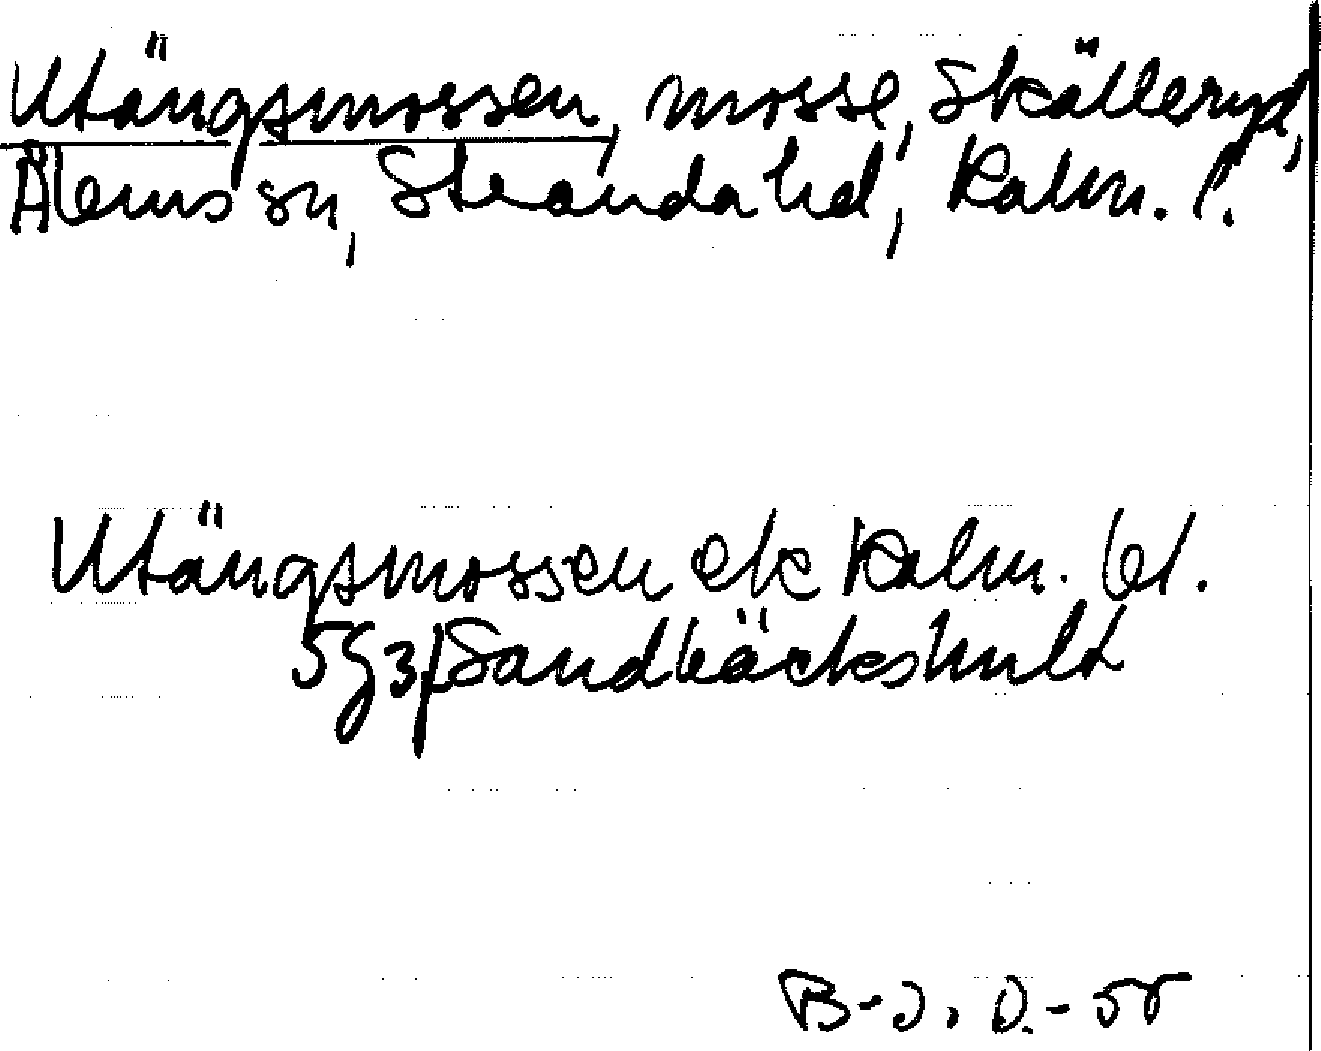 Utängsmossen, mosse, Skälleryd,
Ålems sn, Stranda hd, Kalm. l.
Utängsmossen ek Kalm. bl.
5G3f Sandbäckshult
B-J. O. -55